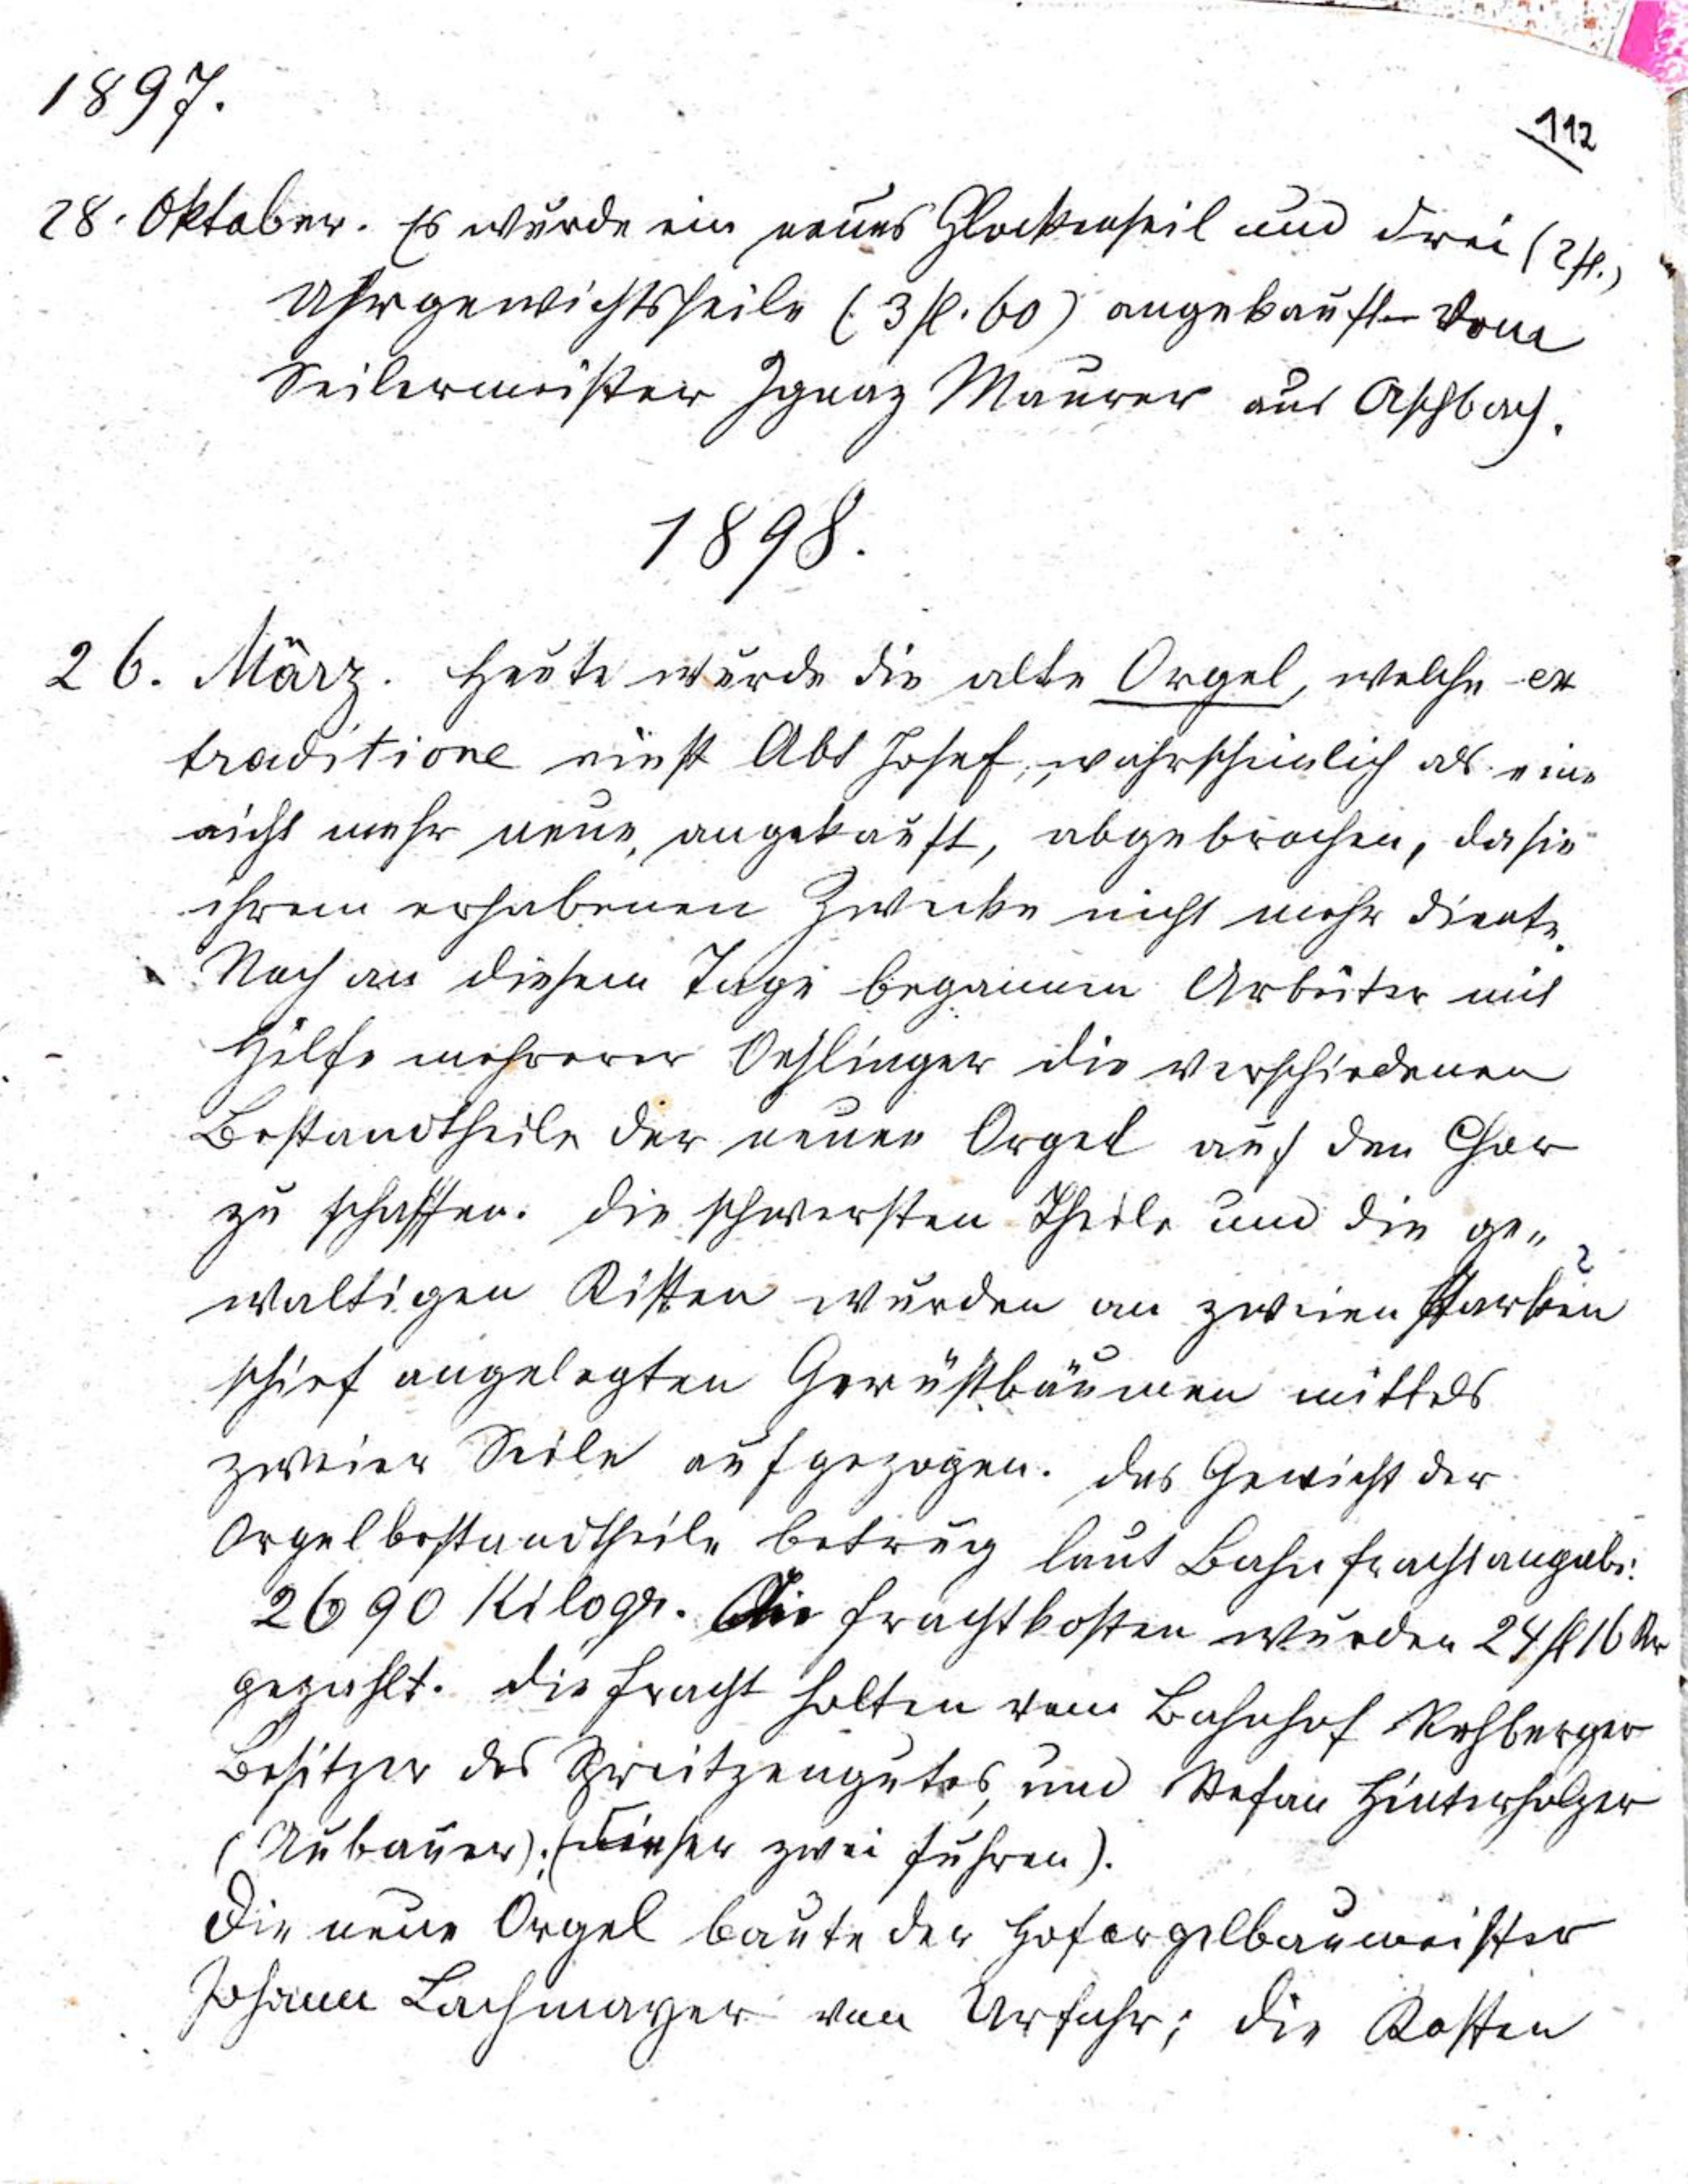 1897.
112
28. Oktober. Es wurde ein neues Glockenseil und drei (2 fl.)
Uhrgewichtsseile (3 fl. 60) angekauft vom
Seilermeister Ignaz Maurer aus Aschbach.
1898.
26. März. Heute wurde die alte Orgel, welche ex
traditione einst Abt Josef, wahrscheinlich als eine
nicht mehr neue, angekauft, abgebrochen, da sie
ihrem erhabenen Zwecke nicht mehr diente.
Noch an diesem Tage begannen Arbeiter mit
Hilfe mehrerer Oehlinger die verschiedenen
Bestandtheile der neuen Orgel auf den Chor
zu schaffen. Die schwersten Theile und die ge„
waltigen Kisten wurden an zweien starken
schief angelegten Gerüstbäumen mittels
zweier Seile aufgezogen. Das Gewicht der
Orgelbestandtheile betrug laut Bahnfrachtangabe:
2690 Kilogr. Die Frachtkosten wurden 24 fl 16 Kr
gezahlt. Die Fracht holten vom Bahnhof Rehberger
Besitzer des Spreitzengutes, und Stefan Hinterholzer
(Aubauer). (dieser zwei Fuhren).
Die neue Orgel baute der Hoforgelbaumeister
Johann Lachmayer von Urfahr; die Kosten